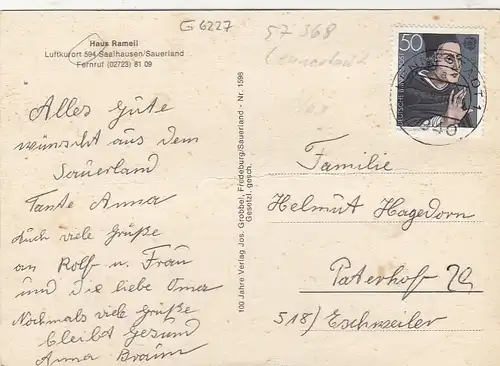 Haus Rameil
Luftkurort 594 Saalhausen/Sauerland
Fernruf (02723) 81 09
G 6227
57 368
50
DEUTSCHE BUNDESPOST
Alles Gute
wünscht aus dem
Sauerland
Tante Anna
Auch viele Grüße
an Rolf u. Frau
und die liebe Oma
Nochmals viele Grüße
bleibt Gesund
Anna Braun
100 Jahre Verlag Jos. Grobbel, Fredeburg/Sauerland - Nr. 1596
Gesetzl. gesch.
Familie
Helmut Hagedorn
Paterhof 7a
518) Eschweiler